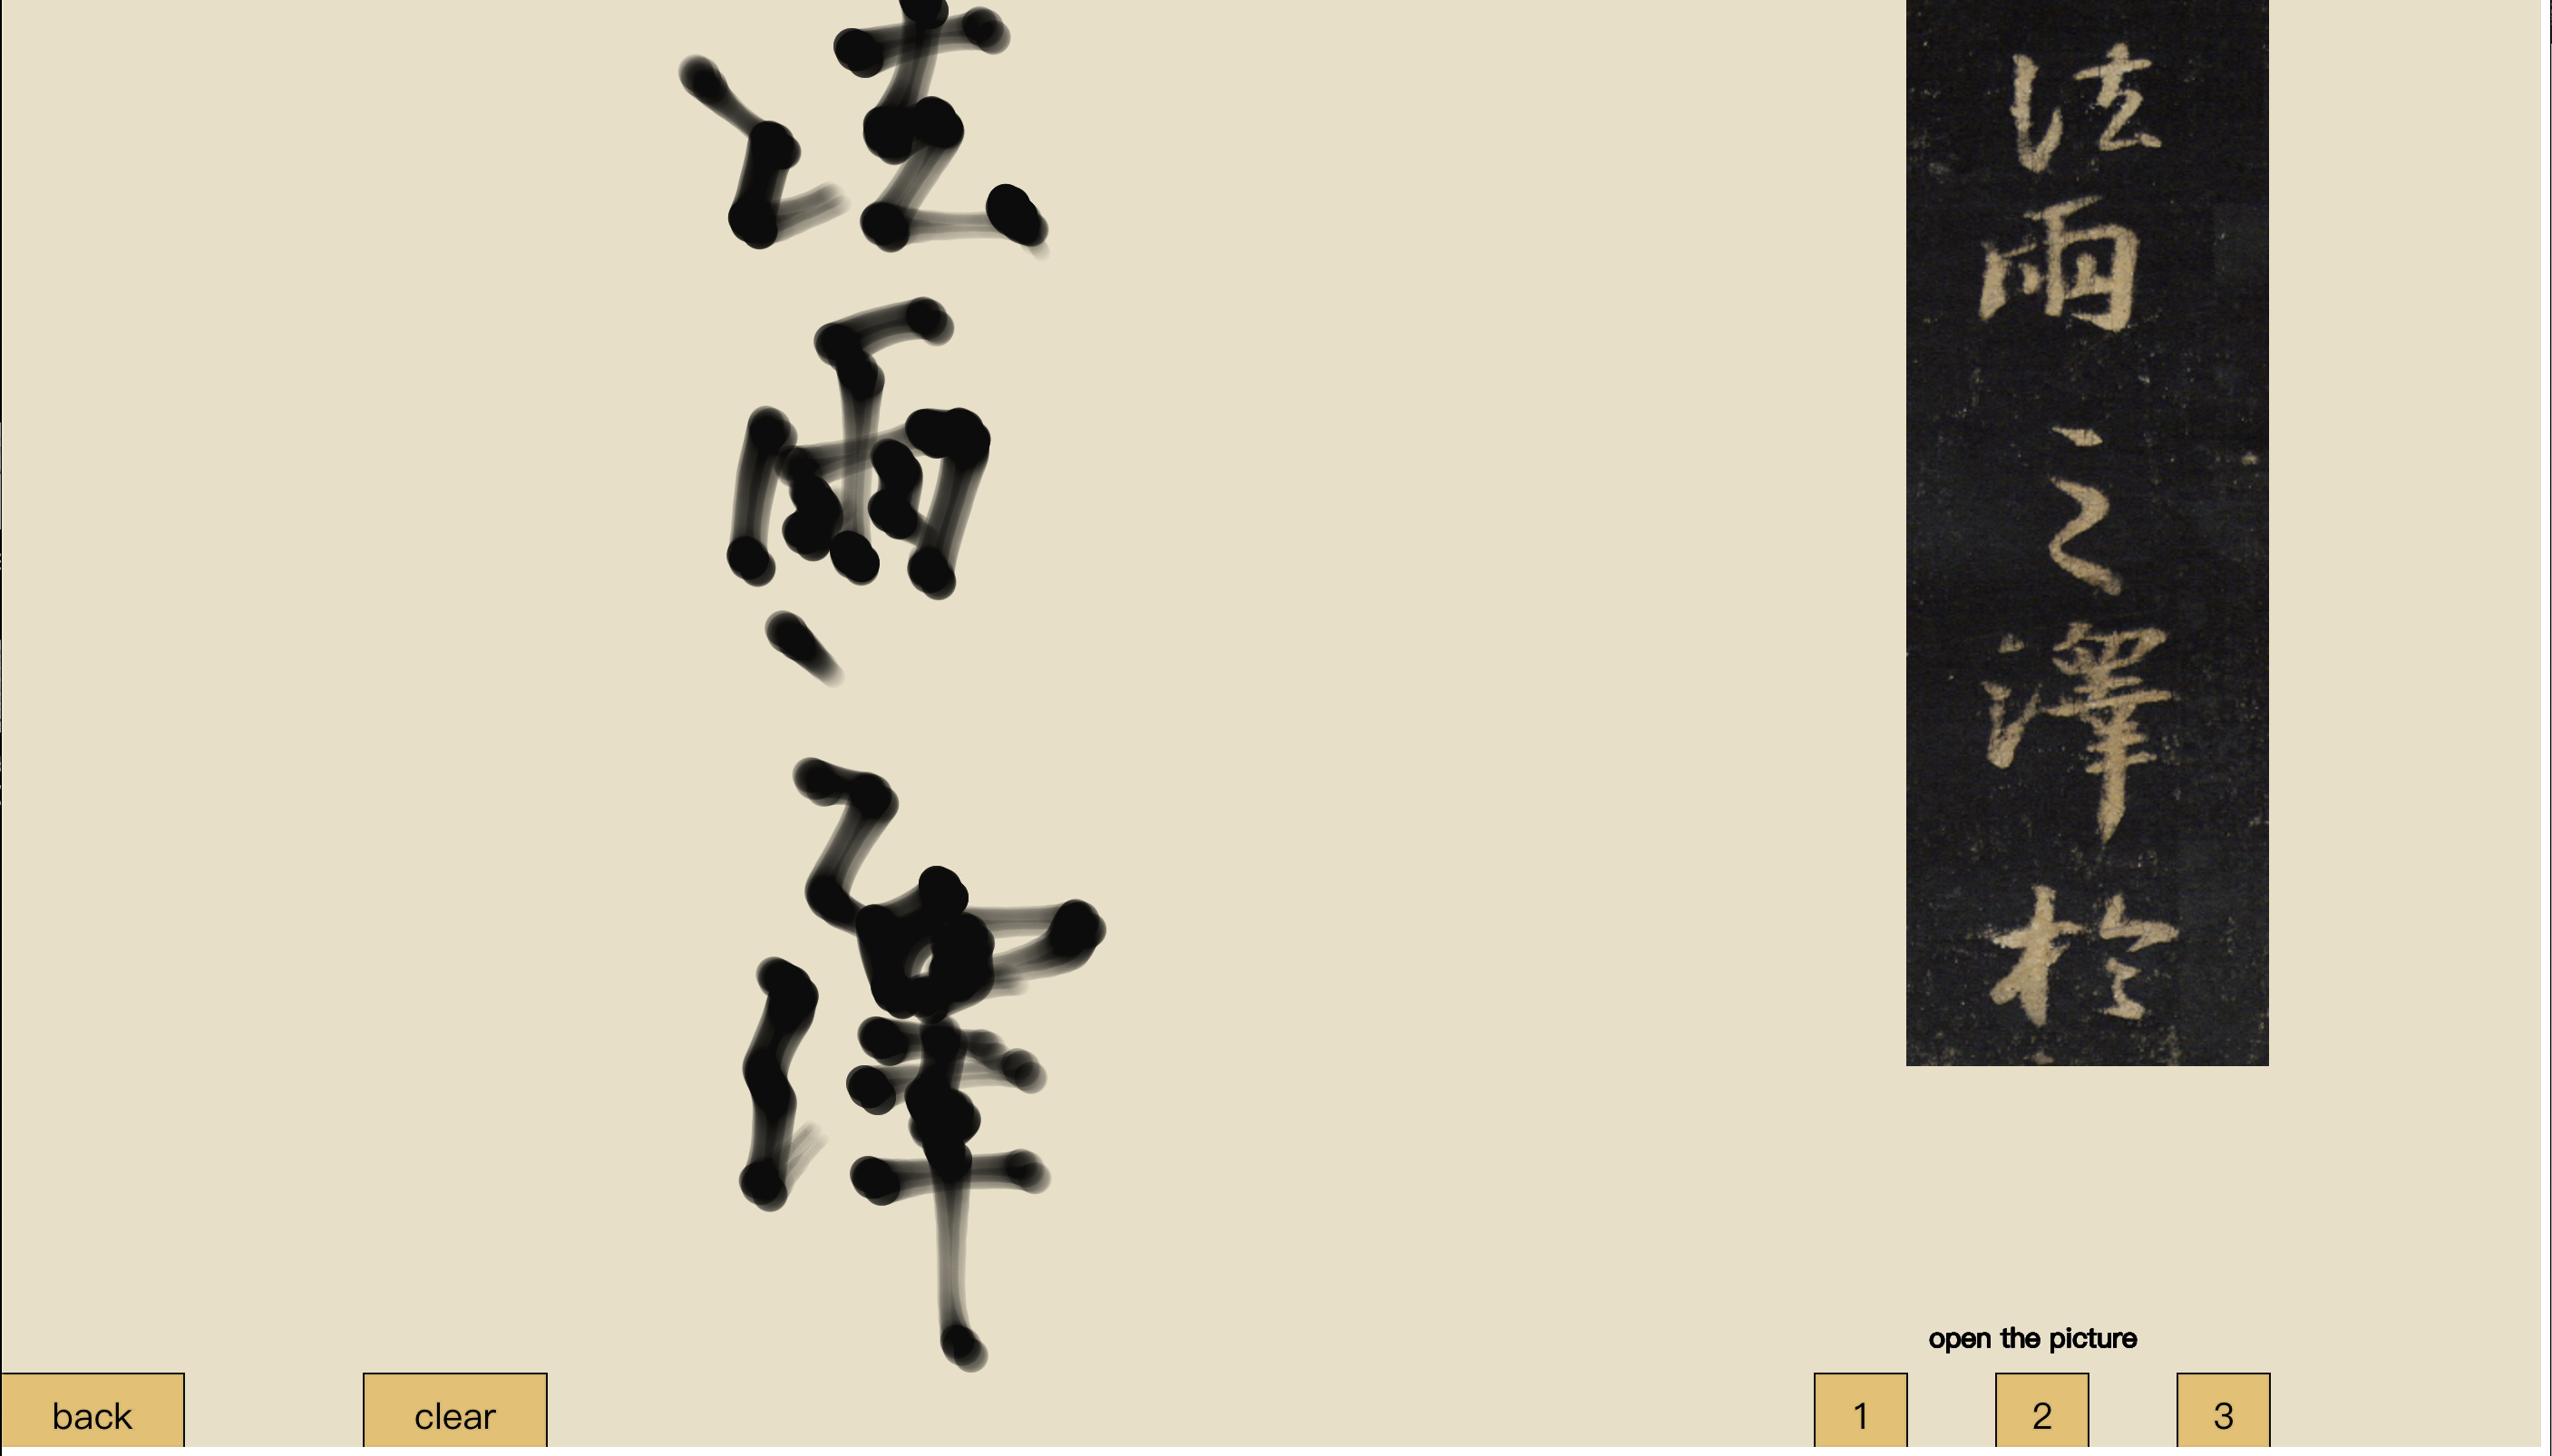 法雨之澤
法雨之澤於
open the picture
back
clear
1
2
3